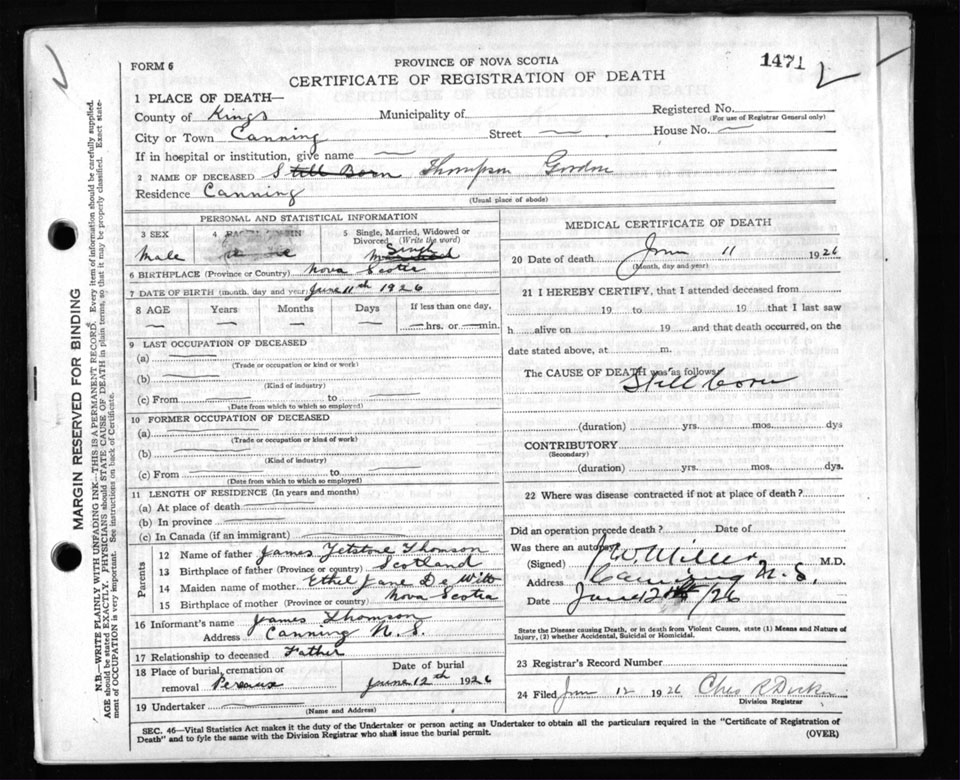 FORM 6
PROVINCE OF NOVA SCOTIA
CERTIFICATE OF REGISTRATION OF DEATH
1471
1 PLACE OF DEATH—
County of Kings Municipality of Registered No.
(For use of Registrar General only)
City or Town Canning Street — House No. —
If in hospital or institution, give name —
2 NAME OF DECEASED Still Born Thompson Gordon
Residence Canning
(Usual place of abode)
PERSONAL AND STATISTICAL INFORMATION
3 SEX 4 5 Single, Married, Widowed or Divorced (Write the word)
Male Single
6 BIRTHPLACE (Province or Country) Nova Scotia
7 DATE OF BIRTH (month, day and year) June 11th 1926
8 AGE Years Months Days If less than one day,
— — — — —hrs. or —min.
9 LAST OCCUPATION OF DECEASED
(a) —
(Trade or occupation or kind of work)
(b) —
(Kind of industry)
(c) From — to —
(Date from which to which so employed)
10 FORMER OCCUPATION OF DECEASED
(a) —
(Trade or occupation or kind of work)
(b) —
(Kind of industry)
(c) From — to —
(Date from which to which so employed)
11 LENGTH OF RESIDENCE (In years and months)
(a) At place of death —
(b) In province —
(c) In Canada (if an immigrant) —
Parents
12 Name of father James Thomson
13 Birthplace of father (Province or country) Scotland
14 Maiden name of mother Ethel Jane De Witt
15 Birthplace of mother (Province or country) Nova Scotia
16 Informant's name James Thomson
Address Canning N.S.
17 Relationship to deceased Father
18 Place of burial, cremation or removal Pereaux Date of burial June 12th 1926
19 Undertaker —
(Name and Address)
MEDICAL CERTIFICATE OF DEATH
20 Date of death June 11 1926
(Month, day and year)
21 I HEREBY CERTIFY, that I attended deceased from
19 to 19 that I last saw
h alive on 19 and that death occurred, on the
date stated above, at m.
The CAUSE OF DEATH was as follows:
Still born
(duration) yrs. mos. dys
CONTRIBUTORY
(Secondary)
(duration) yrs. mos. dys.
22 Where was disease contracted if not at place of death?
Did an operation precede death? Date of
Was there an autopsy
(Signed) W. Miller M.D.
Address Canning N.S.
Date June 12th/26
State the Disease causing Death, or in death from Violent Causes, state (1) Means and Nature of
Injury, (2) whether Accidental, Suicidal or Homicidal.
23 Registrar's Record Number
24 Filed June 12 1926 Chas R
Division Registrar
SEC. 46—Vital Statistics Act makes it the duty of the Undertaker or person acting as Undertaker to obtain all the particulars required in the "Certificate of Registration of
Death" and to fyle the same with the Division Registrar who shall issue the burial permit.
(OVER)
MARGIN RESERVED FOR BINDING
N.B.—WRITE PLAINLY WITH UNFADING INK—THIS IS A PERMANENT RECORD. Every item of information should be carefully supplied.
AGE should be stated EXACTLY. PHYSICIANS should STATE CAUSE OF DEATH in plain terms, so that it may be properly classified. Exact state-
ment of OCCUPATION is very important. See instructions on back of Certificate.